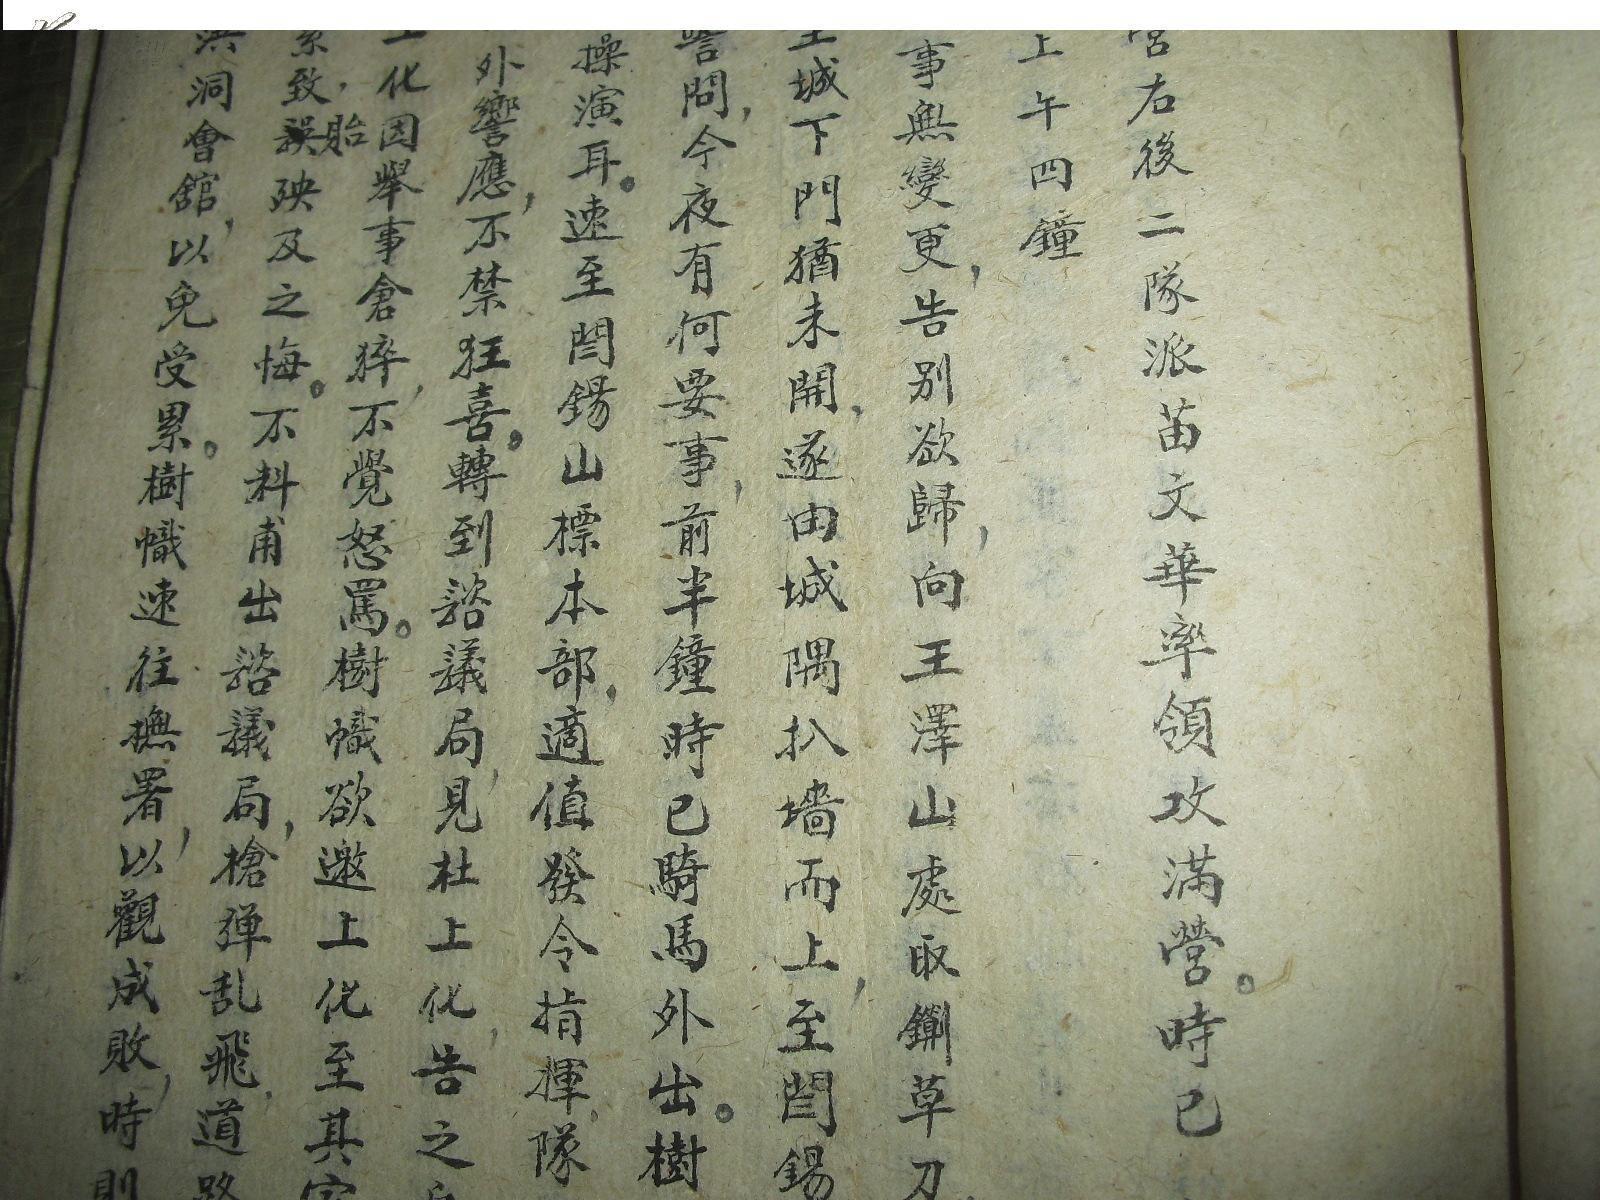 營右後二隊派苗文華率領攻滿營。時已
上午四鐘
事無變更，告别欲歸，向王澤山處取鍘草刀，
至城下門猶未開，遂由城隅扒墙而上，至閻錫
詧問，今夜有何要事，前半鐘時已騎馬外出。樹
操演耳。速至閻錫山標本部，適值發令指揮，隊
外響應，不禁狂喜。轉到諮議局，見杜上化，告之
上化因舉事倉猝，不覺怒罵。樹幟欲邀上化至其家
累致，貽誤殃及之悔。不料甫出諮議局，槍弹乱飛，道路
洪洞會館，以免受累。樹幟速往撫署，以觀成敗，時則